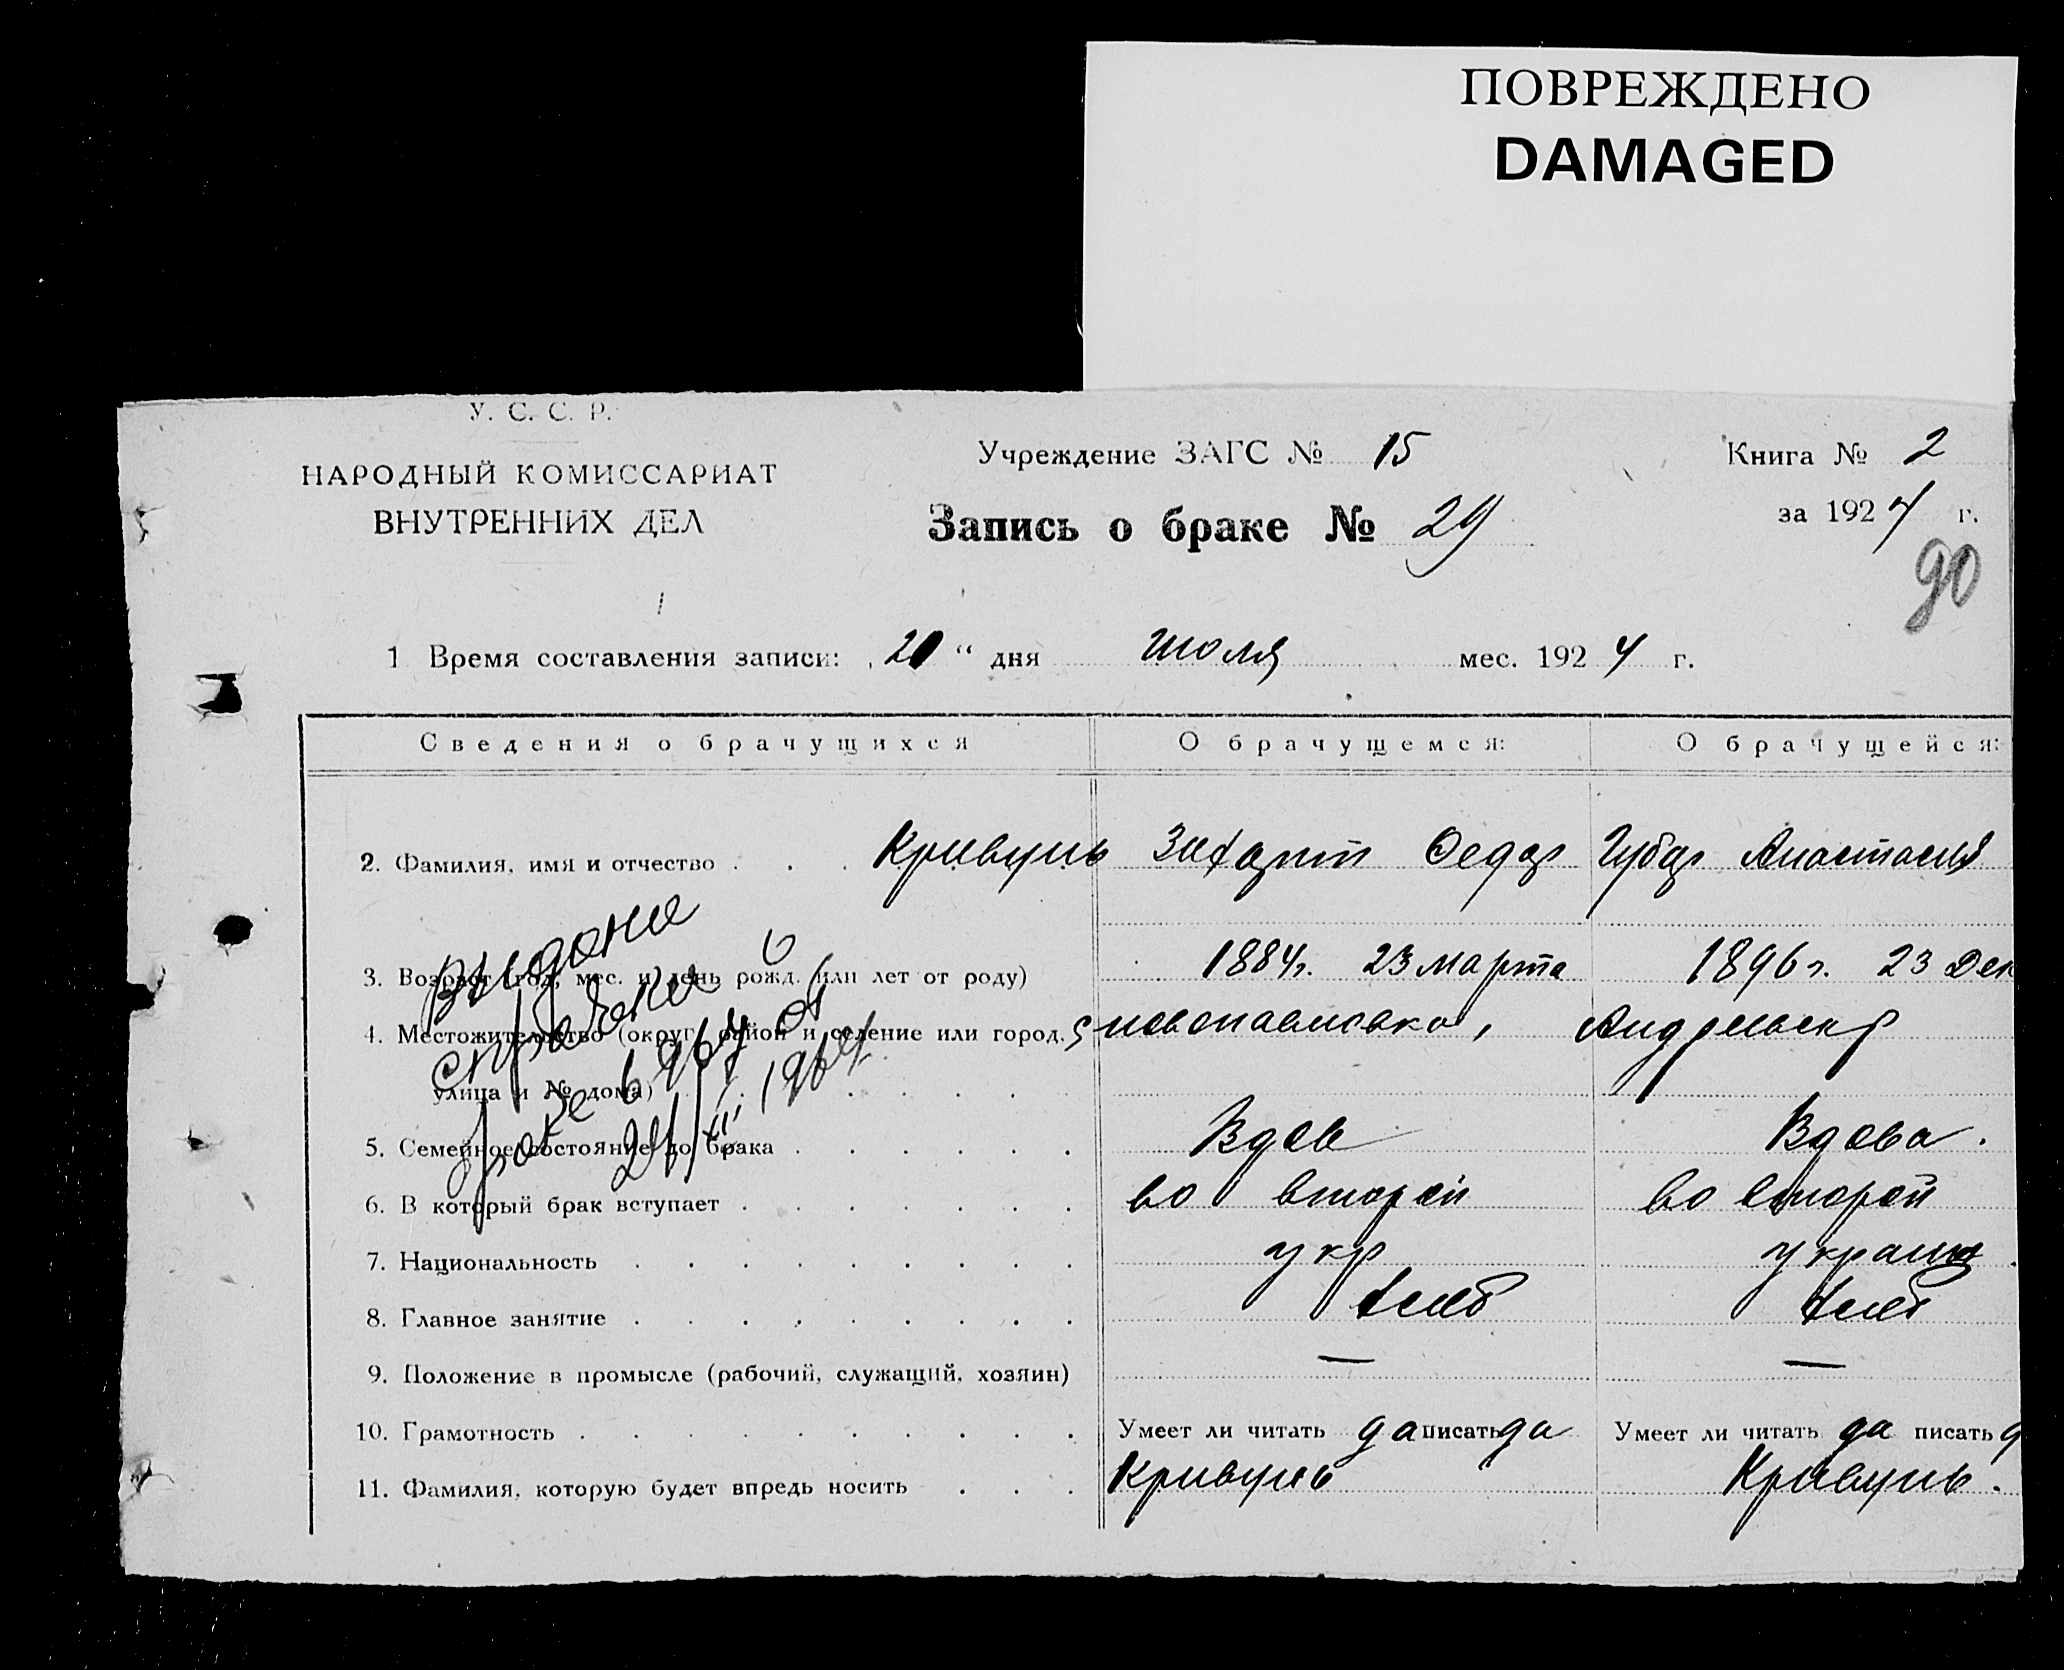 ПОВРЕЖДЕНО
DAMAGED
У. С. С. Р.
НАРОДНЫЙ КОМИССАРИАТ
ВНУТРЕННИХ ДЕЛ
Учреждение ЗАГС № 15
Книга № 2
Запись о браке № 29
за 1924 г.
90
1 Время составления записи: „20“ дня июля мес. 1924 г.
Сведения о брачущихся О брачущемся: О брачущейся:
2. Фамилия, имя и отчество . . . Кривунь Федор Губар Анастасия
3. Возраст (год, мес. и день рожд. или лет от роду) 1884г. 23 марта 1896г. 23 Дек
4. Местожительство (округ, район и селение или город, с новопавловка,
улица и № дома)
5. Семейное состояние до брака . . . . . . Вдов Вдова.
6. В который брак вступает . . . . . . . во второй во второй
7. Национальность . . . . . . . . . укр украин.
8. Главное занятие . . . . . . . . . хлеб хлеб
9. Положение в промысле (рабочий, служащий, хозяин) — —
10. Грамотность . . . . . . . . . . Умеет ли читать да писать да Умеет ли читать да писать д
11. Фамилия, которую будет впредь носить . . . Кривунь Кривунь.
Выдана
справка о
браке
1964